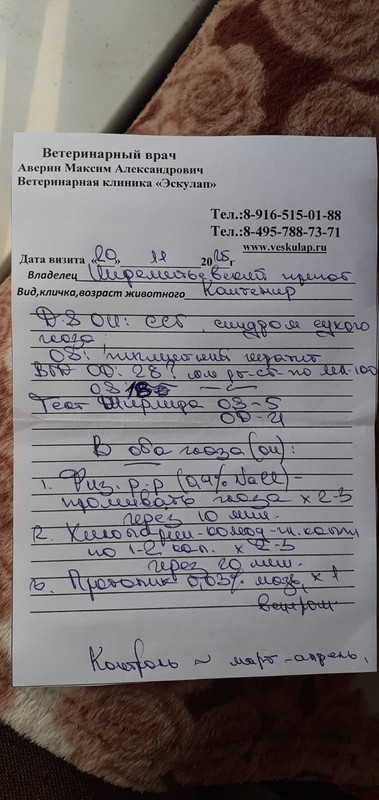 Ветеринарный врач
Аверин Максим Александрович
Ветеринарная клиника «Эскулап»
Тел.:8-916-515-01-88
Тел.:8-495-788-73-71
www.veskulap.ru
Дата визита «20» 11 2025г
Владелец Шереметьевский приют
Вид,кличка,возраст животного Контенир
D.S OU: ССГ, синдром сухого
глаза.
OS: пигментный кератит
ВГД OD: 28
OS 18
Тест Ширмера OS-5
OD-4
В оба глаза (ou):
1. Физ. р-р (0,9% NaCl)-
промывать глаза x 2-3
через 10 мин.
2. Хилопарин-комод-гл. капли
по 1-2 кап. x 2-3
через 20 мин.
3. Протопик 0,03% мазь x 1
вечером
Контроль ~ март-апрель.